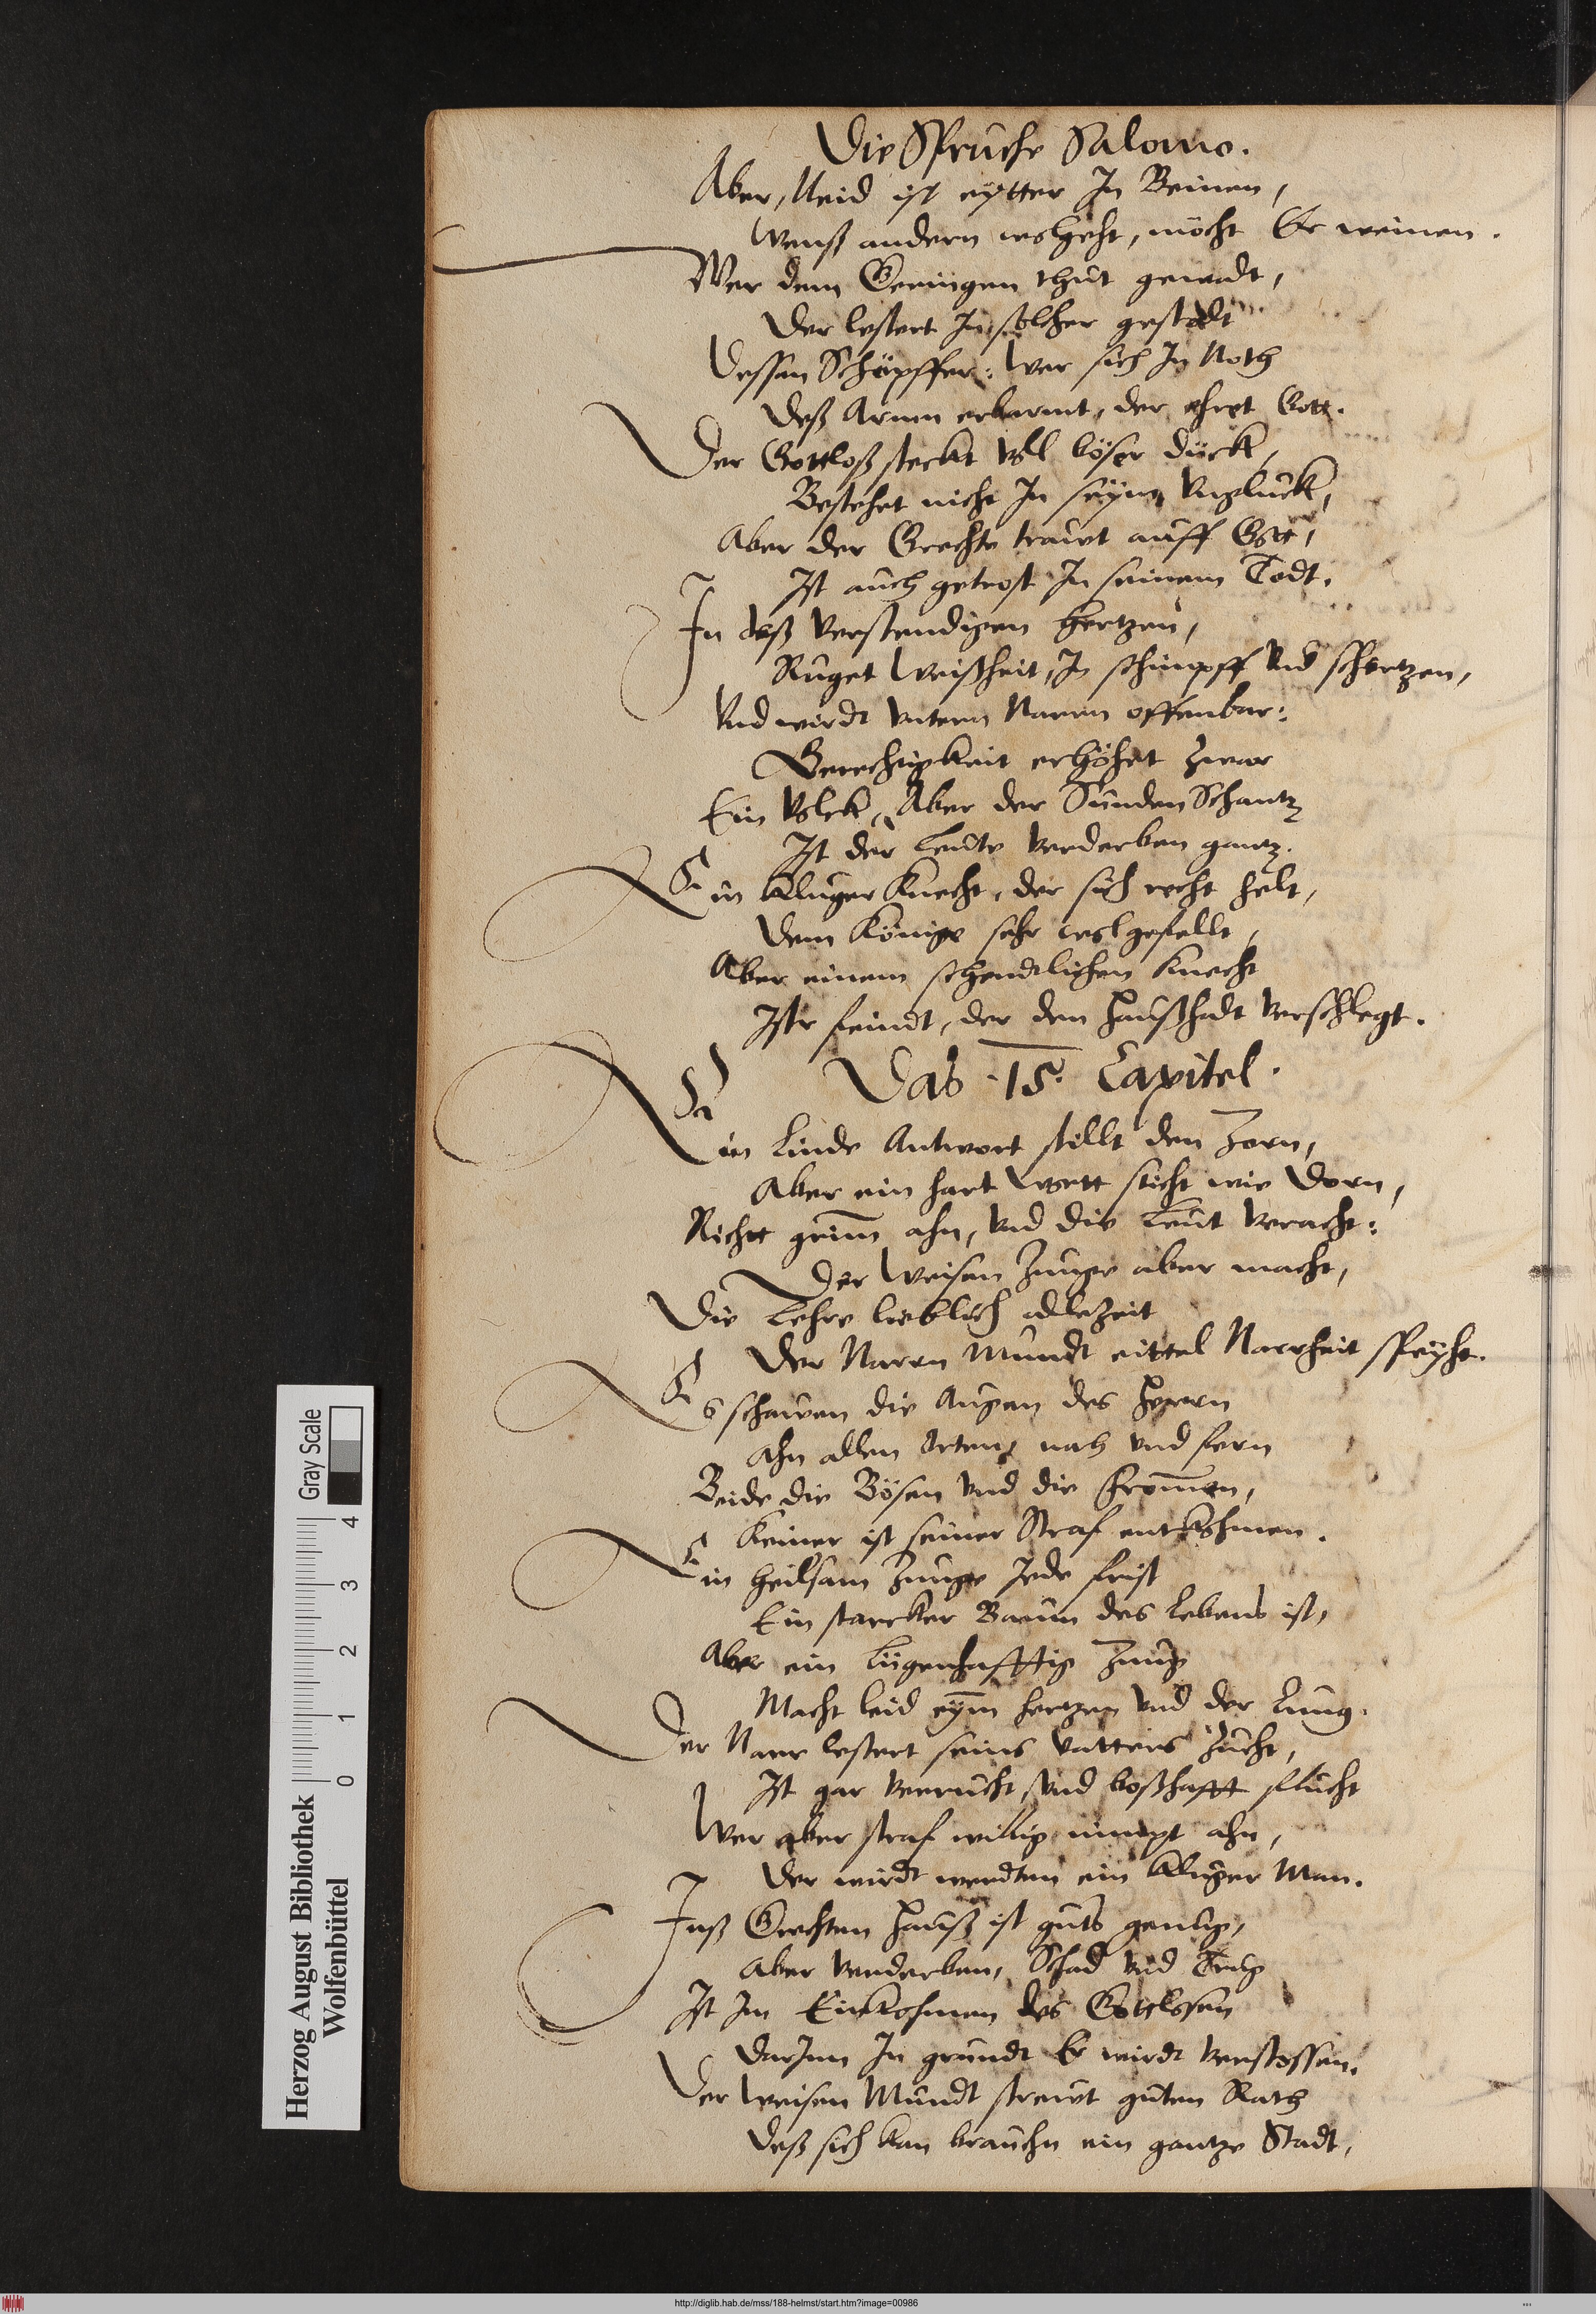 Die Spruche Salomo.
Aber, Neid ist eytter In Beinen,
Wenß andern wolgeht, möcht Er weinen.
Wer dem Geringen thut gewalt,
Der lestert In solcher gestalt
Dessen Schöpffer: Wer sich In Noth
Deß Armen erbarmt, der ehret Gott.
Der Gottloß steckt voll böser dück,
Bestehet nicht In seynem Vnglück,
Aber der Grechte trauet auff Gott,
Ist auch getrost In seinem Todt.
In deß verstendigen hertzen,
Ruget Weißheit, In schimpff vnd schertzen,
Vnd wirdt vntern Narren offenbar:
Gerechtigkeit erhöhet zwar
Ein Volck, Aber der Sünden Schantz
Ist der Leute verderben gantz.
Ein kluger Knecht, der sich recht helt,
Dem Könige sehr wolgefellt,
Aber einem schendtlichen Knecht
Istr feindt, der den Haußhadt verschlegt.
Das .15. Capitel.
Ein Linde Antwort stillt den Zorn,
Aber ein hart Wortt sticht wie Dorn,
Richtt grim̄ ahn, vnd die Leut veracht:
Der Weisen Zunge aber macht,
Die Lehre lieblich allezeit
Der Narren Mundt eittel Narrheit speyht.
Es schauen die Augen des Herren
Ahn allen Orten, nah vnd fern
Beide die Bösen vnd die From̄en,
Keiner ist seiner Straf entkohmen.
Ein heilsam Zunge Jede frist
Ein starcker Baum des Lebens ist,
Aber ein lügenhafftig Zung
Macht leid eym̄ hertzen vnd der Lung.
Der Narr lestert seins vatters Zucht,
Ist gar verrucht, vnd boßhafft flucht
Wer aber straf willig nimpt ahn,
Der wirdt werdten ein kluger Man.
Inß Grechten Hauß ist guts genug,
Aber verderben, Schad vnd Trug
Ist Im Einkohmen des Gottlosen
Darinn In grundt Er wirdt verstossen.
Der Weisen Mundt streuet guten Rath
Deß sich kan brauchen ein gantze Stadt,
Gray Scale
0 1 2 3 4
Herzog August Bibliothek
Wolfenbüttel
http://diglib.hab.de/mss/188-helmst/start.htm?image=00986